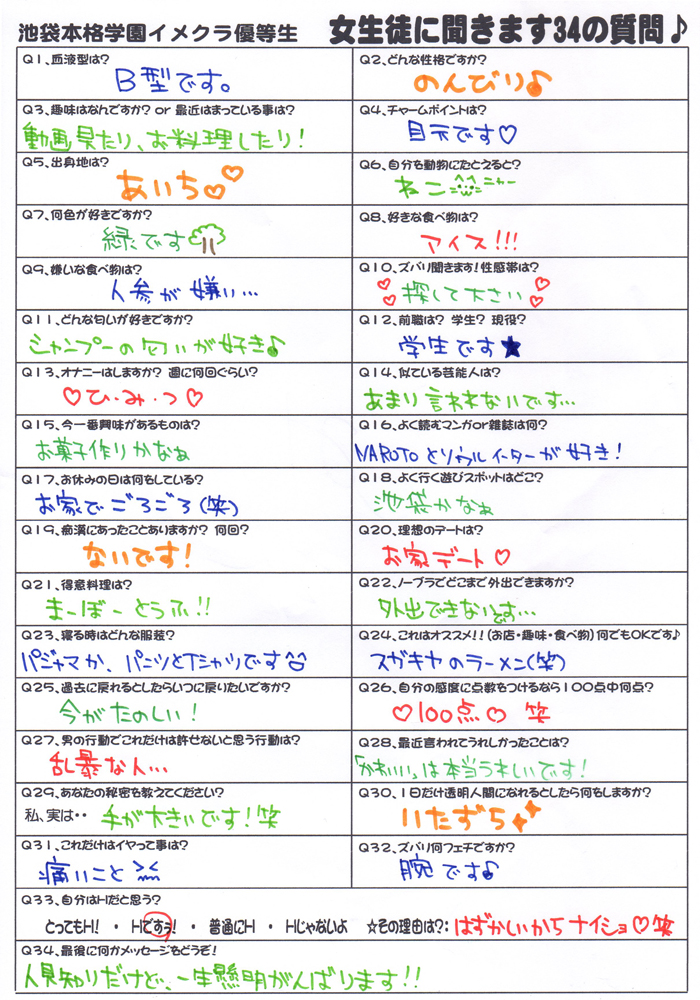 池袋本格学園イメクラ優等生 女生徒に聞きます34の質問♪
Q1、血液型は?
B型です。
Q2、どんな性格ですか?
のんびり♪
Q3、趣味はなんですか? or 最近はまっている事は?
動画見たり、お料理したり!
Q4、チャームポイントは?
目元です♡
Q5、出身地は?
あいち♡♡
Q6、自分を動物にたとえると?
ねこ ニャー
Q7、何色が好きですか?
緑です
Q8、好きな食べ物は?
アイス!!!
Q9、嫌いな食べ物は?
人参が嫌い…
Q10、ズバリ聞きます!性感帯は?
♡探して下さい♡
Q11、どんな匂いが好きですか?
シャンプーの匂いが好き♪
Q12、前職は? 学生? 現役?
学生です★
Q13、オナニーはしますか? 週に何回ぐらい?
♡ひ・み・つ♡
Q14、似ている芸能人は?
あまり言われないです…
Q15、今一番興味があるものは?
お菓子作りかなぁ
Q16、よく読むマンガor雑誌は何?
NAROTOとソウルイーターが好き!
Q17、お休みの日は何をしている?
お家でごろごろ(笑)
Q18、よく行く遊びスポットはどこ?
池袋かなぁ
Q19、痴漢にあったことありますか? 何回?
ないです!
Q20、理想のデートは?
お家デート♡
Q21、得意料理は?
まーぼーとうふ!!
Q22、ノーブラでどこまで外出できますか?
外出できないです…
Q23、寝る時はどんな服装?
パジャマか、パンツとTシャツです
Q24、これはオススメ!!(お店・趣味・食べ物)何でもOKです♪
スガキヤのラーメン(笑)
Q25、過去に戻れるとしたらいつに戻りたいですか?
今がたのしい!
Q26、自分の感度に点数をつけるなら100点中何点?
♡100点♡ 笑
Q27、男の行動でこれだけは許せないと思う行動は?
乱暴な人…
Q28、最近言われてうれしかったことは?
「かわいい」は本当うれしいです!
Q29、あなたの秘密を教えてください?
私、実は‥ 手が大きいです!笑
Q30、1日だけ透明人間になれるとしたら何をしますか?
いたずら
Q31、これだけはイヤって事は?
痛いこと
Q32、ズバリ何フェチですか?
腕です♪
Q33、自分はHだと思う?
とってもH! ・ Hですぅ! ・ 普通にH ・ Hじゃないよ ☆その理由は?: はずかしいからナイショ♡笑
Q34、最後に何かメッセージをどうぞ!
人見知りだけど、一生懸命がんばります!!